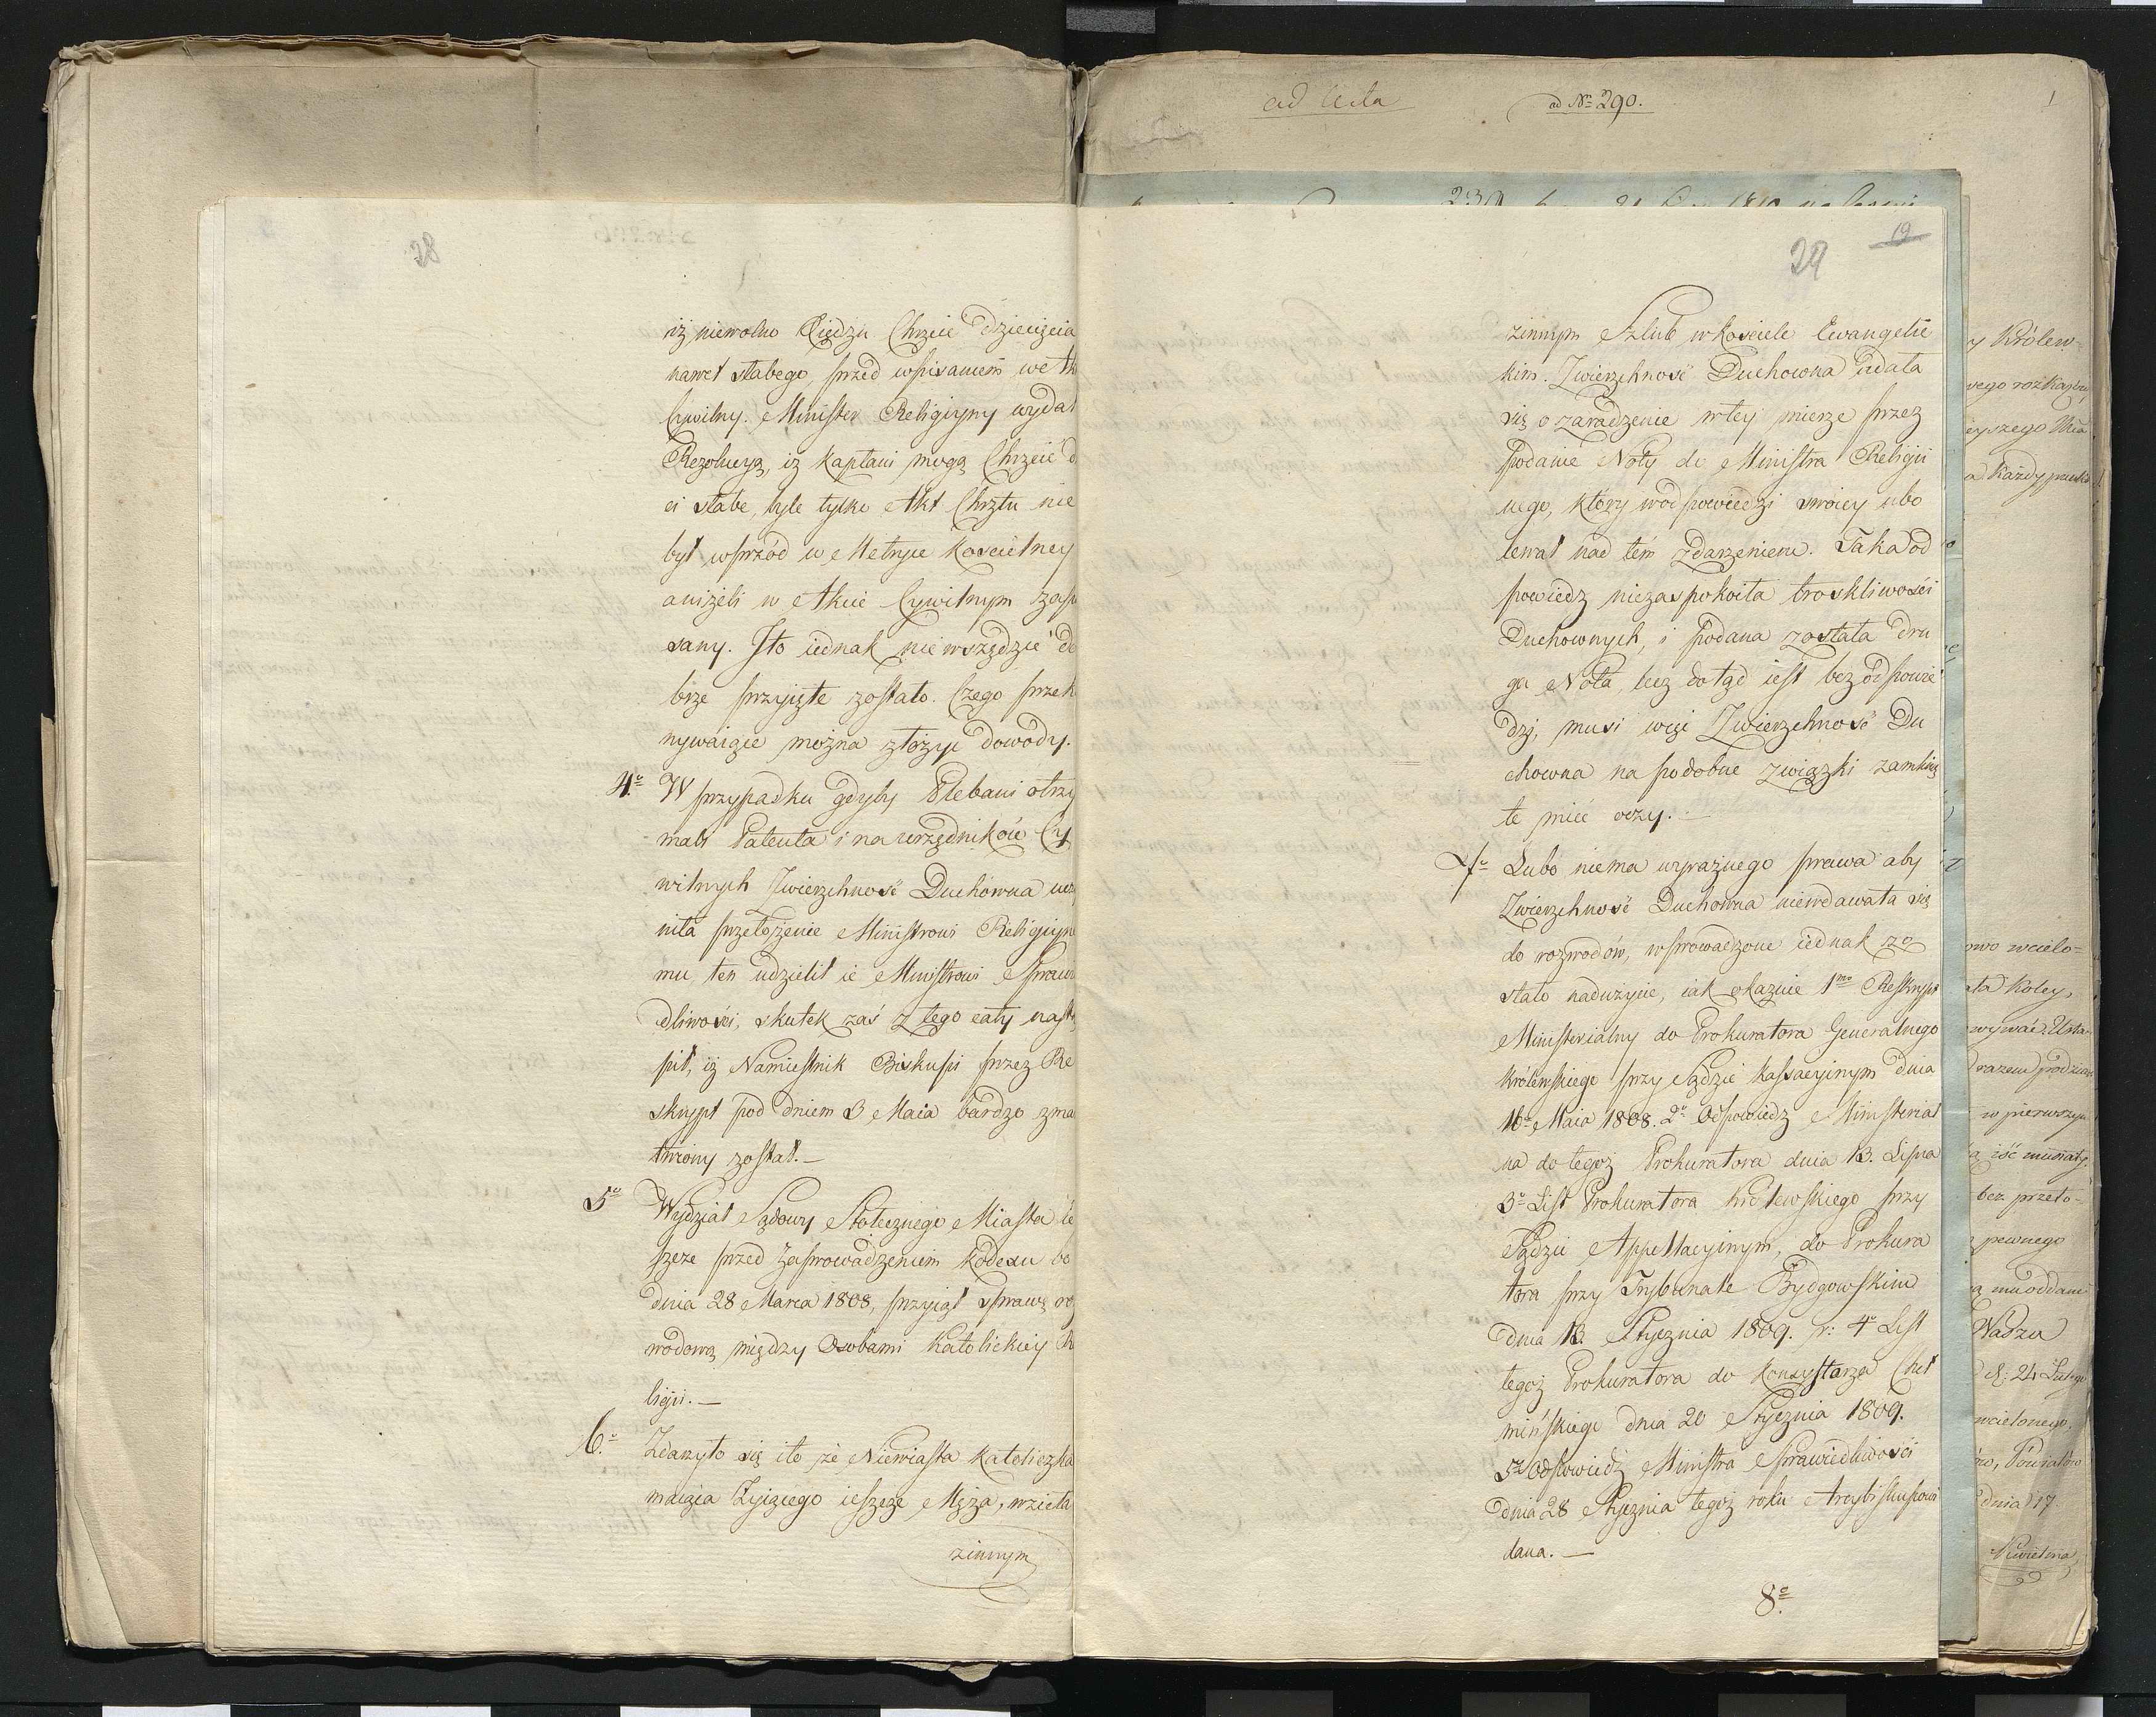 28
iż niewolno Xiędzu Chrzcić dziecięcia
nawet słabego, przed wpisaniem we Ak
Cywilny. Minister Religiyny wydał
Rezolucyą, iż Kapłani mogą Chrzcić d
ci słabe, byle tylko Akt Chrztu nie
był wprzód w Metryce Kościelney
aniżeli w Akcie Cywilnym zapi
sany. Jto iednak nie wszędzie do
brze przyięte zostało. Czego przeko
nywaiące można złożyć dowody.
4º W przypadku gdyby Plebani otrzy
mali Patenta i na urzędników Cy
wilnych Zwierzchność Duchówna uczy
niła przełożenie Ministrowi Religiyne
mu, ten udzielił ie Ministrowi Sprawie
dliwości, skutek zaś z tego cały nastą
pił, iż Namiestnik Biskupi przez Re
skrypt pod dniem 3 Maia bardzo zma
twiony został.—
5º Wydział Sądowy Stołecznego Miasta ie
szcze przed zaprowadzeniem Kodexu bo
dnia 28 Marca 1808, przyiął sprawę roz
wodową między Osobami Katolickiey Re
ligii.—
6º Zdarzyło się i to że Niewiasta Katoliczka
maiąca Zyiącego ieszcze Męża, wzięła
zinnym
ad Acta
ad Nº 290.
1
19
29
zinnym Szlub w Kościele Ewangelic
kim. Zwierzchność Duchowna udała
się o zaradzenie w tey mierze przez
podanie Noty do Ministra Religii
nego, który w odpowiedzi swoiey ubo
lewał nad tém zdarzeniem. Taka od
powiedz niezaspokoiła troskliwości
Duchownych, i podana została dru
ga Nota, lecz dotąd iest bez odpowie
dzi, musi więc Zwierzchność Du
chowna na podobne związki zamknię
te mieć oczy.—
7º Lubo niema wyraźnego prawa aby
Zwierzchność Duchowna niewdawała się
do rozwodów, wprowadzone iednak zo
stało nadużycie, iak okazuie 1mo Reskrypt
Ministerialny do Prokuratora Generalnego
Królewskiego przy Sądzie Kassacyinym dnia
16º Maia 1808. 2º Odpowiedz Ministerial
na do tegoż Prokuratora dnia 13. Lipca
3º List Prokuratora Królewskiego przy
Sądzie Appellacyinym, do Prokura
tora przy Trybunale Bydgowskim
dnia 13. Stycznia 1809. r: 4º List
tegoż Prokuratora do Konsystarza Cheł
mińskiego dnia 20 Stycznia 1809.
5º Odpowiedź Ministra Sprawiedliwości
dnia 28 Stycznia tegoż roku Arcybiskupowi
dana.—
8º
y Królew-
wego rozkazu,
eyszego Mia
a Każdy
owo wcielo=
ata Koley,
wywać
razem
w pierwszym
ią iść musiały.
bez przeło-
pewnego
mu oddane
Wadza
d: 24 Lutego
wcielonego,
dnia 17
Kwietnia,